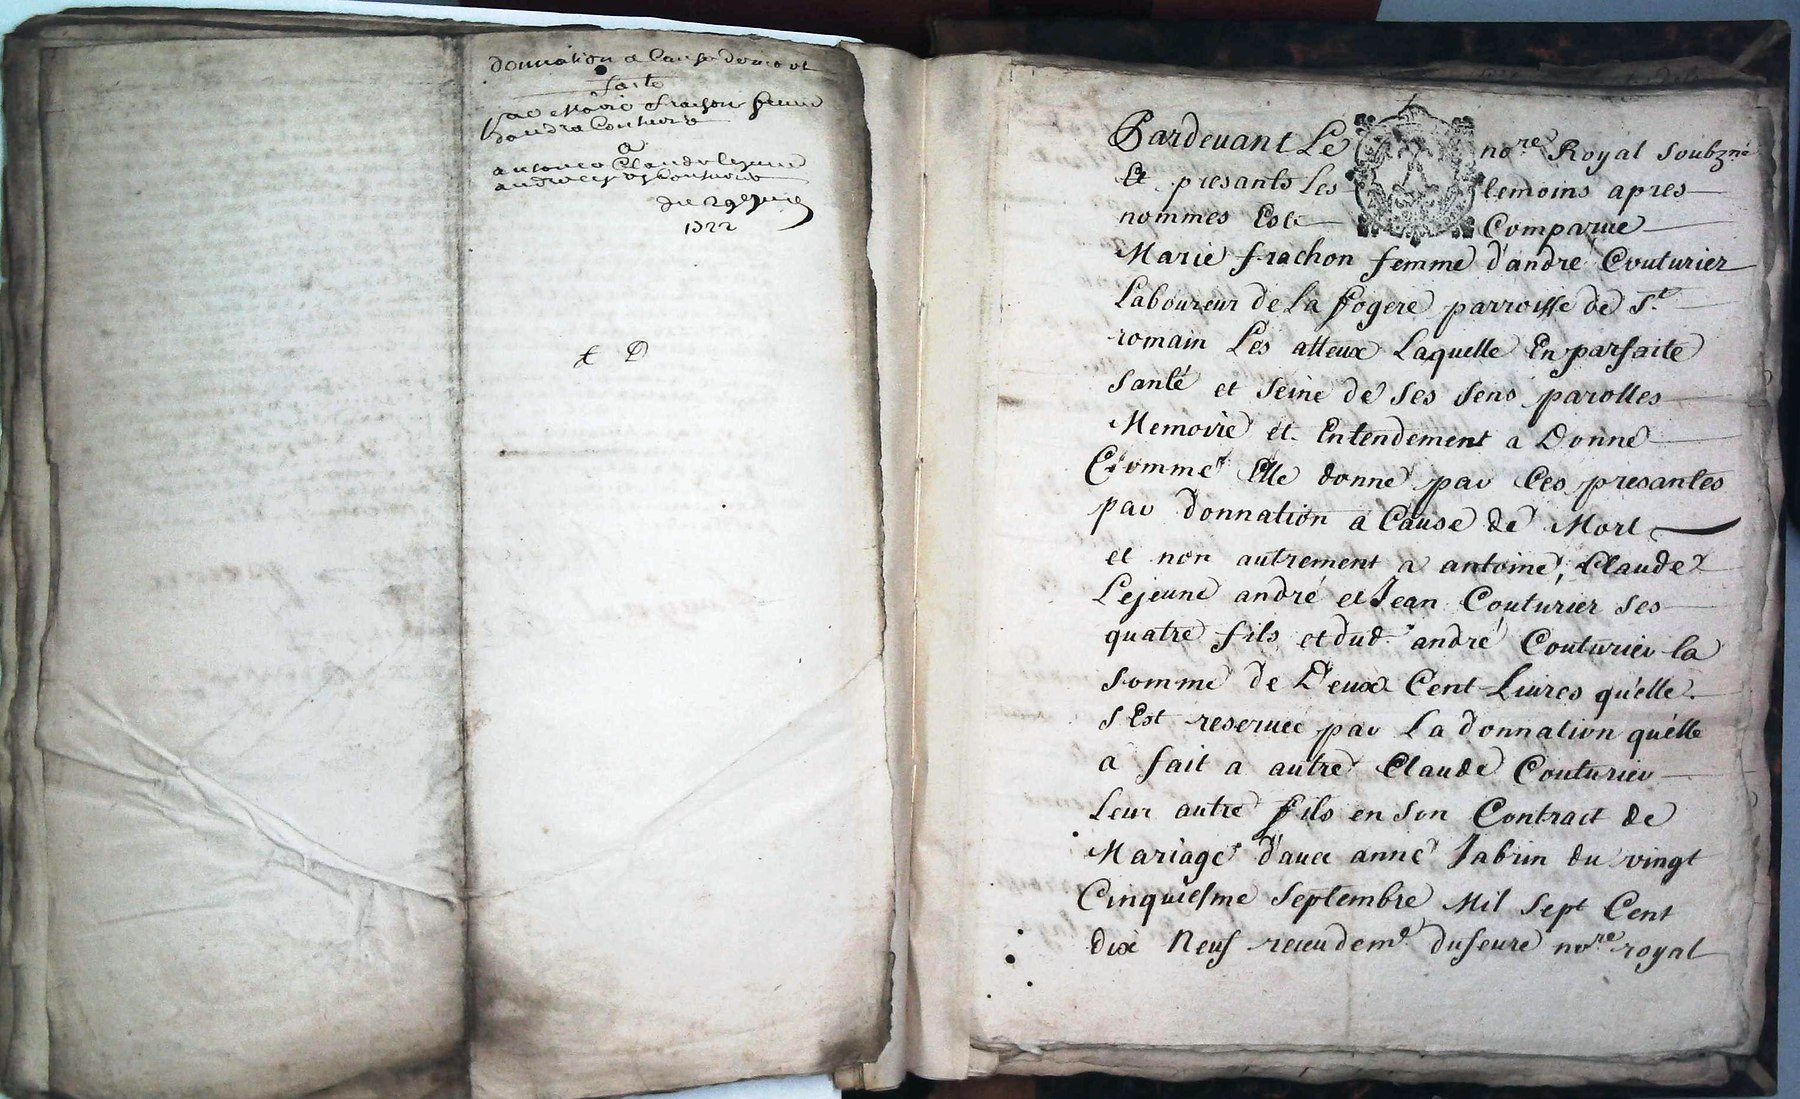 donnation a Cause de mort
faite
par Marie frachon femme
dandre Couturier
a
antoine Claude lejeune
andre et Couturier
du 29e
1722
& D
Pardevant Le no.re Royal soubz.né
Et presants Les temoins apres
nommes Est Comparue
Marie frachon femme d'andré Couturier
Laboureur de La fogere parroisse de S.t
romain Les atteux Laquelle En parfaite
santé et seine de ses sens parolles
Memoire et Entendement a Donné
Comme Elle donne par Ces presantes
par donnation a Cause de Mort
et non autrement a antoine, Claude
Lejeune andré et Jean Couturier ses
quatre fils et dud. andré Couturier la
somme de Deux Cent Livres qu'elle
s'Est reservée par La donnation qu'elle
a fait a autre Claude Couturier
Leur autre fils en son Contract de
Mariage d'avec anne Jabrin du vingt
Cinquiesme Septembre Mil Sept Cent
dix Neuf receu de m.e dufeure no.re royal